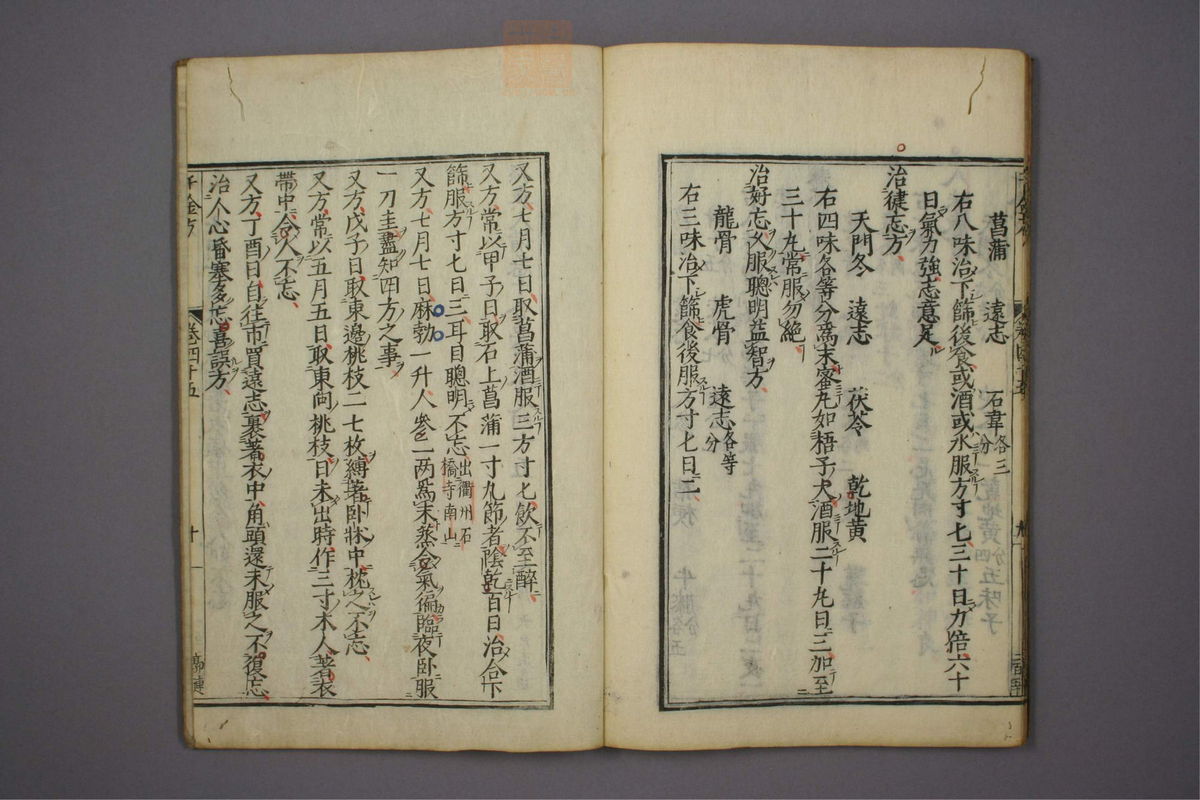 菖蒲　遠志　石韋各三分
右八味治下篩後食或酒或水服方寸匕三十日力倍六十
日氣力強志意足
治健忘方
天門冬　遠志　茯苓　乾地黄
右四味各等分爲末蜜丸如梧子大酒服二十丸日三加至
三十丸常服勿絶
治好忘久服聰明益智方
龍骨　虎骨　遠志各等分
右三味治下篩食後服方寸匕日二
又方七月七日取菖蒲酒服三方寸匕飲不至醉
又方常以甲子日取石上菖蒲一寸九節者陰乾百日治合下
篩服方寸匕日三耳目聰明不忘出衢州石橋寺南山
又方七月七日麻勃一升人參二两爲末蒸令氣徧臨夜卧服
一刀圭盡知四方之事
又方戊子日取東邊桃枝二七枚縛著卧牀中枕之不忘
又方常以五月五日取東向桃枝日未出時作三寸木人著衣
帶中令人不忘
又方丁酉日自往市買遠志裹著衣中角頭還末服之不復忘
治人心昏塞多忘喜誤方
千金方
卷四十五
十一